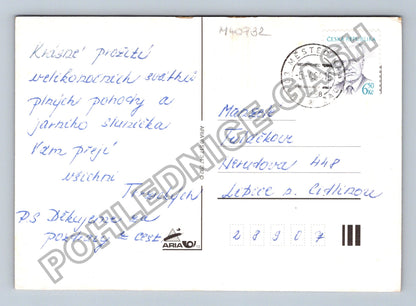 M40732
Krásné prožití
velikonočních svátků
plných pohody a
jarního sluníčka
Vám přejí
všichni
PS Děkujeme za
pozdrav z cest
ČESKÁ REPUBLIKA
6,50 Kč
MĚSTEC
Manželé
Nerudova 448
Lysice n. Cidlinou
2 8 9 0 7
ARIA
POHLEDNICE-CASH